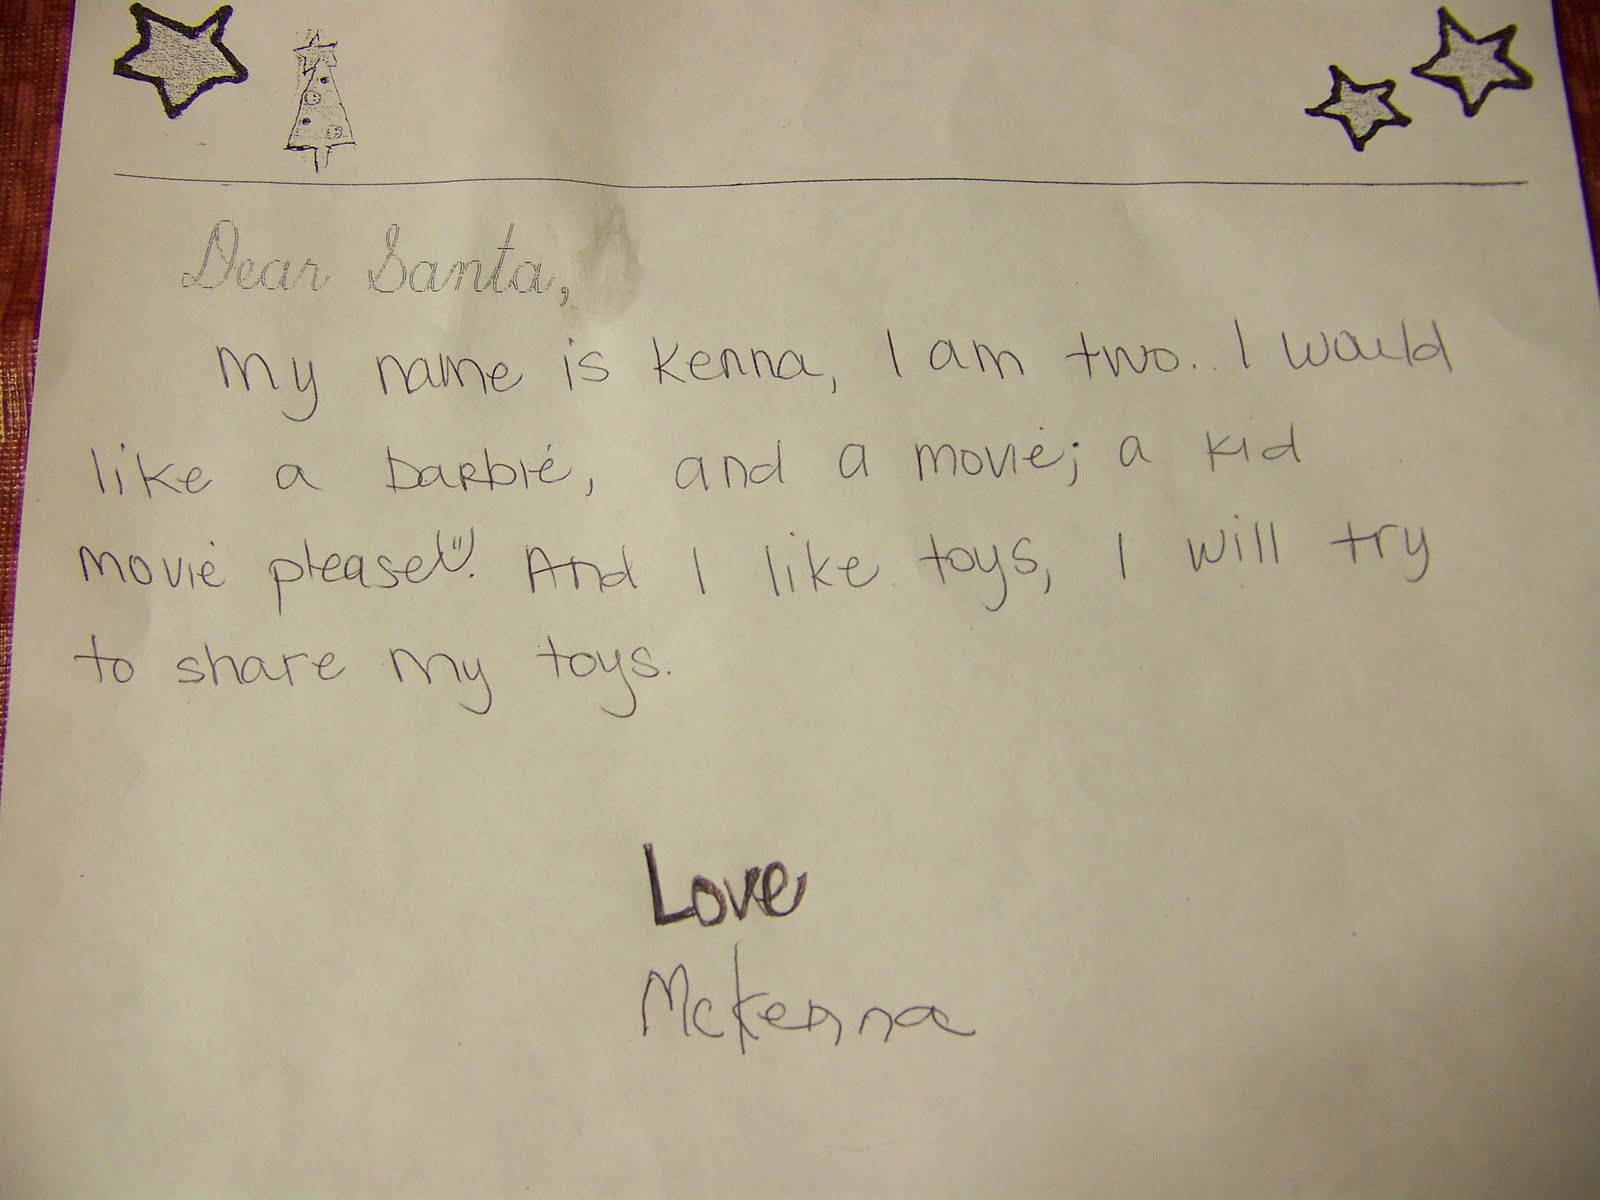 Dear Santa,
My name is Kenna, I am two. I would
like a barbie, and a movie; a kid
movie please! And I like toys, I will try
to share my toys.
Love
McKenna